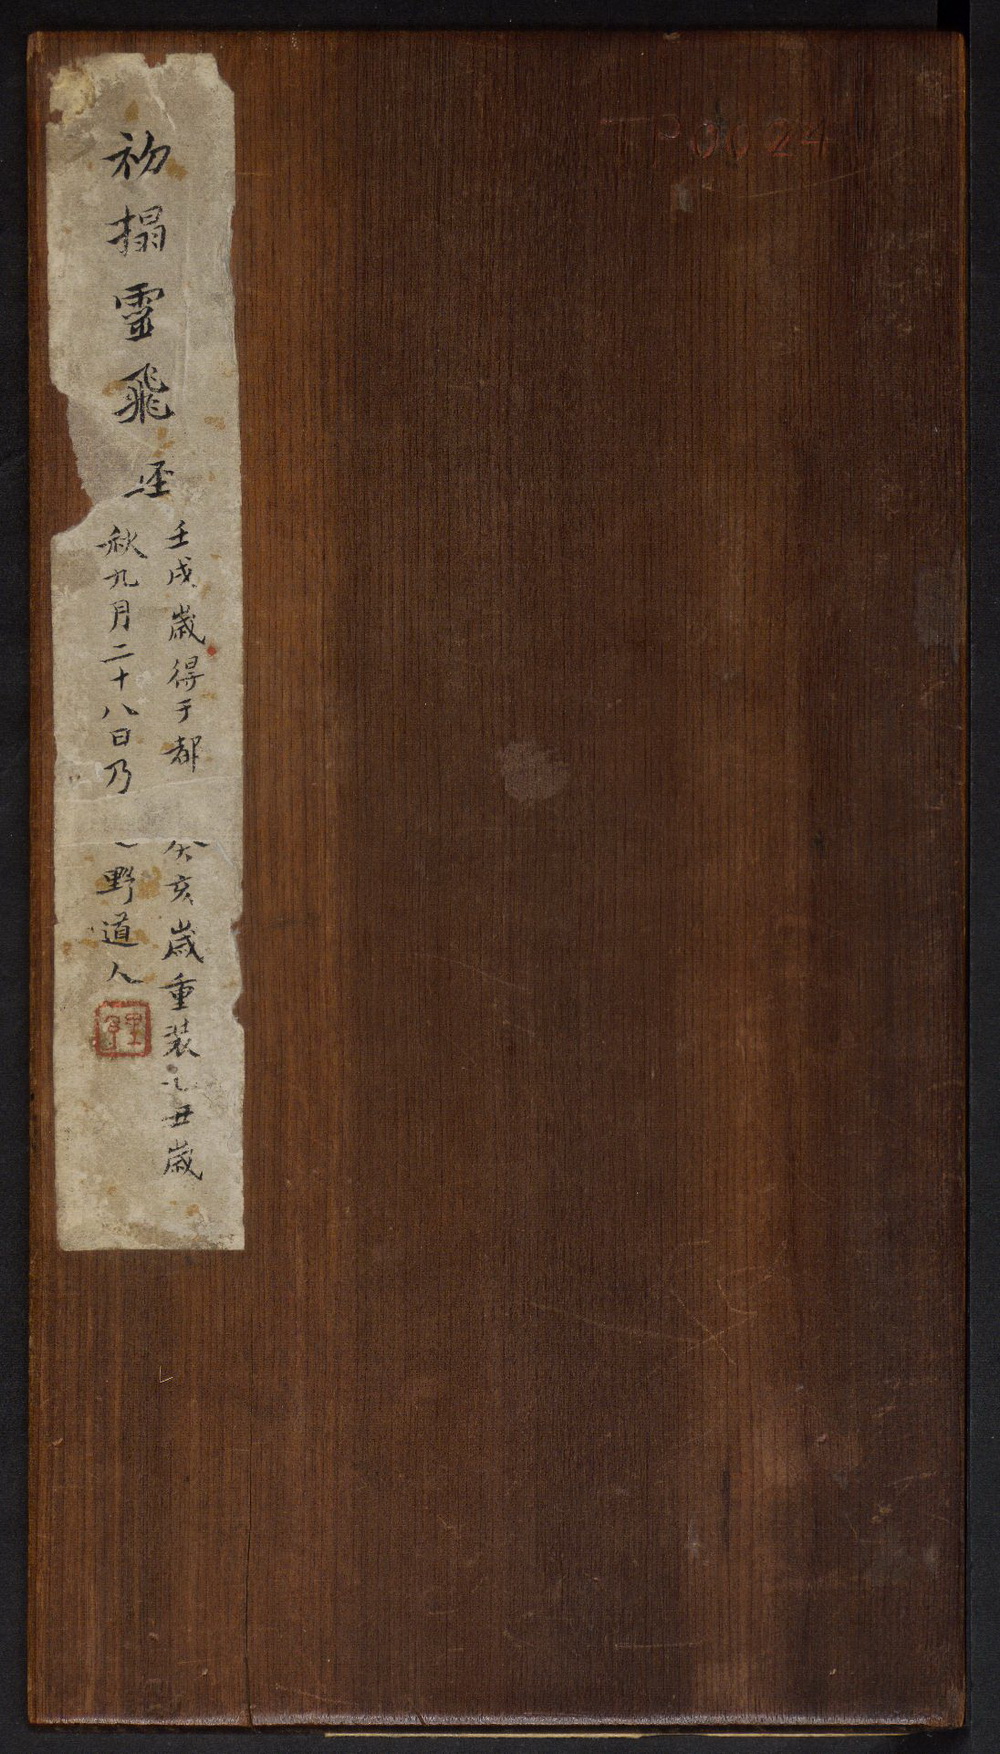 初搨靈飛
壬戌歲得于都
癸亥歲重装乙丑歲
秋九月二十八日乃
野道人
TP0024